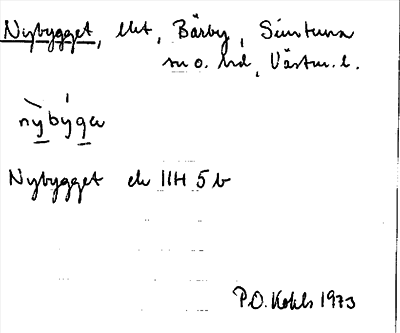 Nybygget, lht, Bärby, Simtuna
sn o. hd, Västm. l.
nỳbýgev
Nybygget ek 11H 5b
P.O. Kohls 1973